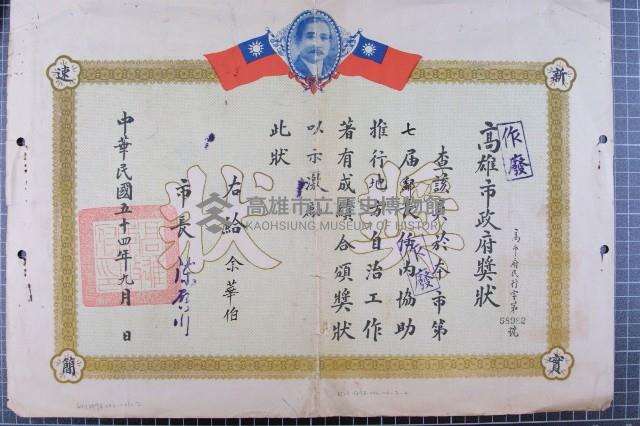 新
速
實
簡
作廢
高雄市政府獎狀
高市府民行字第
58982
號
查該員於本市第
七屆鄰長任內協助
作廢
推行地方自治工作
著有成績合頒獎狀
以示激勵
此狀
右給 余華伯
市長
中華民國五十四年九月 日
獎狀
高雄市立歷史博物館
KAOHSIUNG MUSEUM OF HISTORY